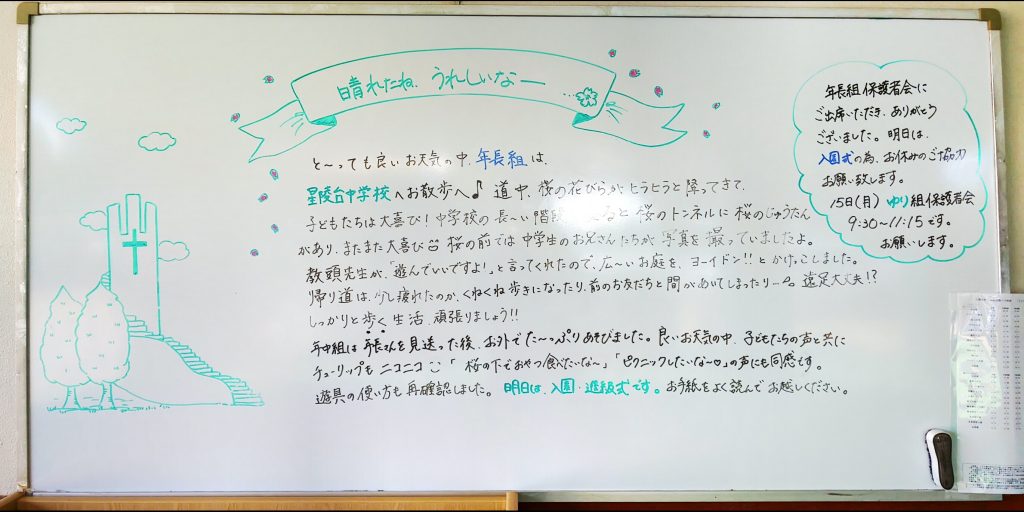 晴れたね、うれしいなー
と〜っても良いお天気の中、年長組は、
星陵台中学校へお散歩へ♪ 道中、桜の花びらがヒラヒラと降ってきて、
子どもたちは大喜び!中学校の長〜い階段 ると桜のトンネルに桜のじゅうたん
があり、またまた大喜び 桜の前では中学生のお兄さんたちが写真を撮っていましたよ。
教頭先生が、「遊んでいいですよ!」と言ってくれたので、広〜いお庭を、ヨーイドン!!とかけっこしました。
帰り道は、少し疲れたのか、くねくね歩きになったり、前のお友だちと間があいてしまったり…。遠足大丈夫!?
しっかりと歩く生活、頑張りましょう!!
年中組は年長さんを見送った後、お外でた〜っぷりあそびました。良いお天気の中、子どもたちの声と共に
チューリップもニコニコ 「桜の下でおやつ食べたいな〜」「ピクニックしたいな〜♡」の声にも同感です。
遊具の使い方も再確認しました。明日は、入園・進級式です。お手紙をよく読んでお越しください。
年長組保護者会に
ご出席いただき、ありがとう
ございました。明日は、
入園式の為、お休みのご協力
お願い致します。
15日(月) ゆり組保護者会
9:30〜11:15です。
お願いします。